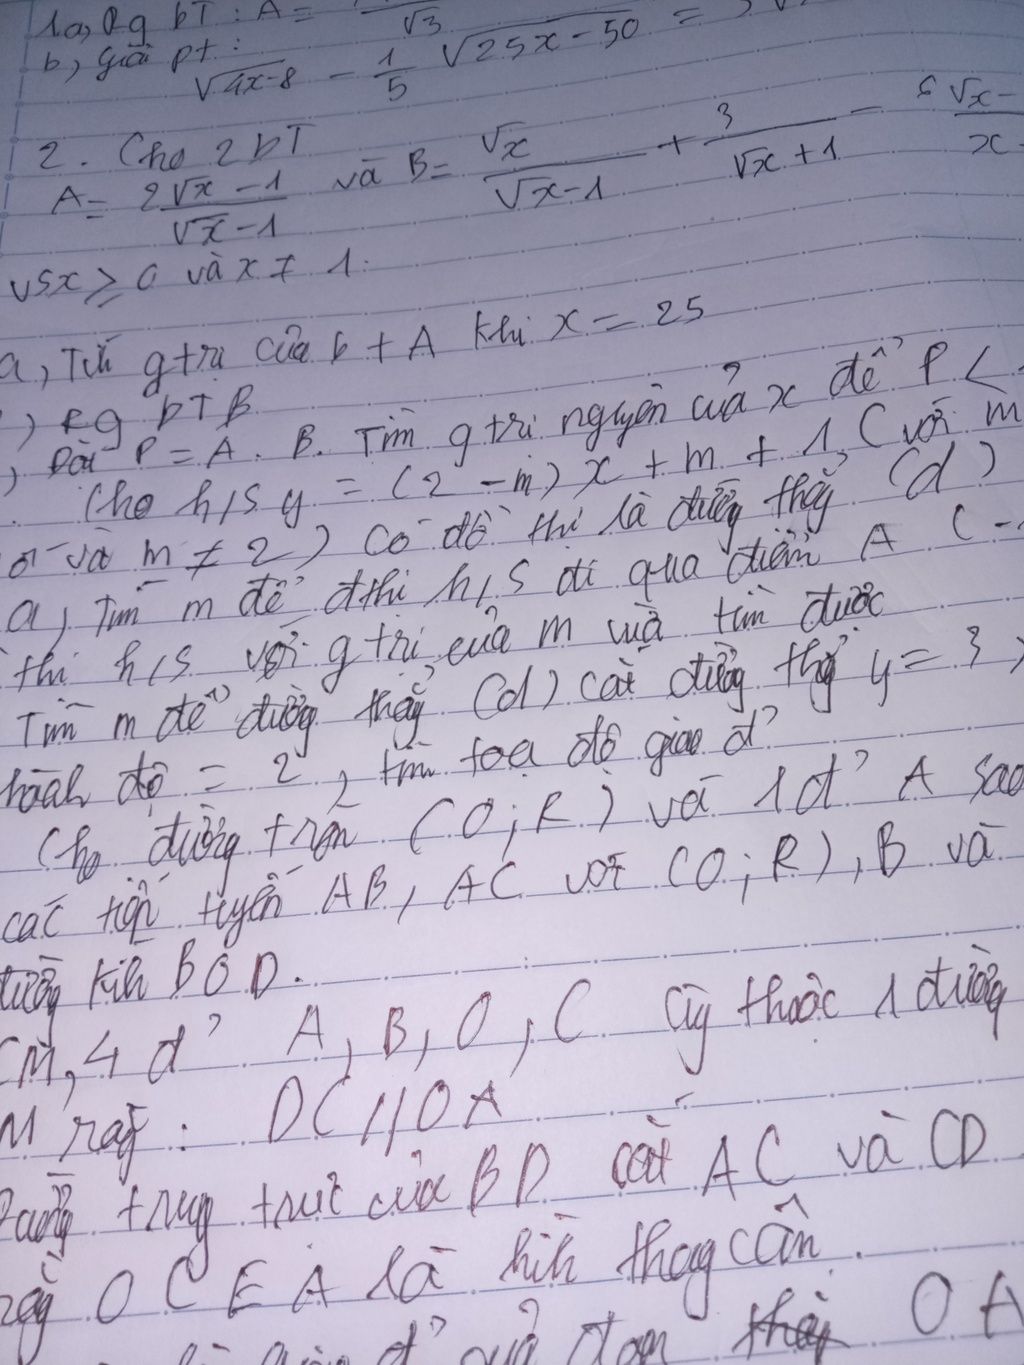 1a, Rg bT : A = √3
b, giải pt :
√4x-8 - 1/5 √25x-50 =
2. Cho 2 bT
A = 2√x -1 / √x -1 và B = √x / √x -1 + 3 / √x +1 - 6√x - / x
vs x ≥ 0 và x ≠ 1.
a, Tú gtrị của b + A khi x = 25
) Rg bT B
) Đặt P = A . B. Tìm gtrị nguyên của x để P <
. Cho h/s y = (2 - m) x + m + 1, ( với m
số và m ≠ 2 ) có đồ thị là đường thẳg (d)
a, Tìm m để đthị h/s đi qua điểm A ( -
thị h/s với gtrị của m vừa tìm được
Tìm m để đường thẳg (d) cắt đường thẳg y = 3
hoàh độ = 2, tìm toạ độ giao đ'
Cho đường tròn (O ; R) và 1 đ' A sao
các tiếp tuyến AB, AC với (O ; R), B và
đường kíh BOD.
CM, 4 đ' A, B, O, C cùg thuộc 1 đường
M rằg : DC // OA
Đường trug trực của BD cắt AC và CD
rằg OCEA là hìh thag cân.
đ' của đoạn thẳg OA